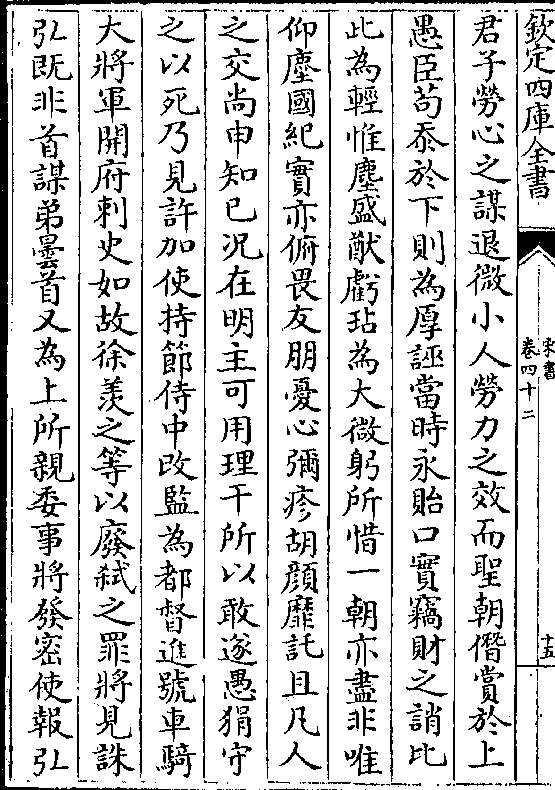 欽定四庫全書
宋書
卷四十二
十五
君子勞心之謀退微小人勞力之效而聖朝僭賞於上
愚臣苟忝於下則為厚誣當時永貽口實竊財之誚比
此為輕惟塵盛猷虧玷為大微躬所惜一朝亦盡非唯
仰塵國紀實亦俯畏友朋憂心彌疹胡顏靡託且凡人
之交尚申知已况在明主可用理干所以敢遂愚狷守
之以死乃見許加使持節侍中改監為都督進號車騎
大將軍開府刺史如故徐羡之等以廢弑之罪將見誅
弘既非首謀弟曇首又為上所親委事將發密使報弘